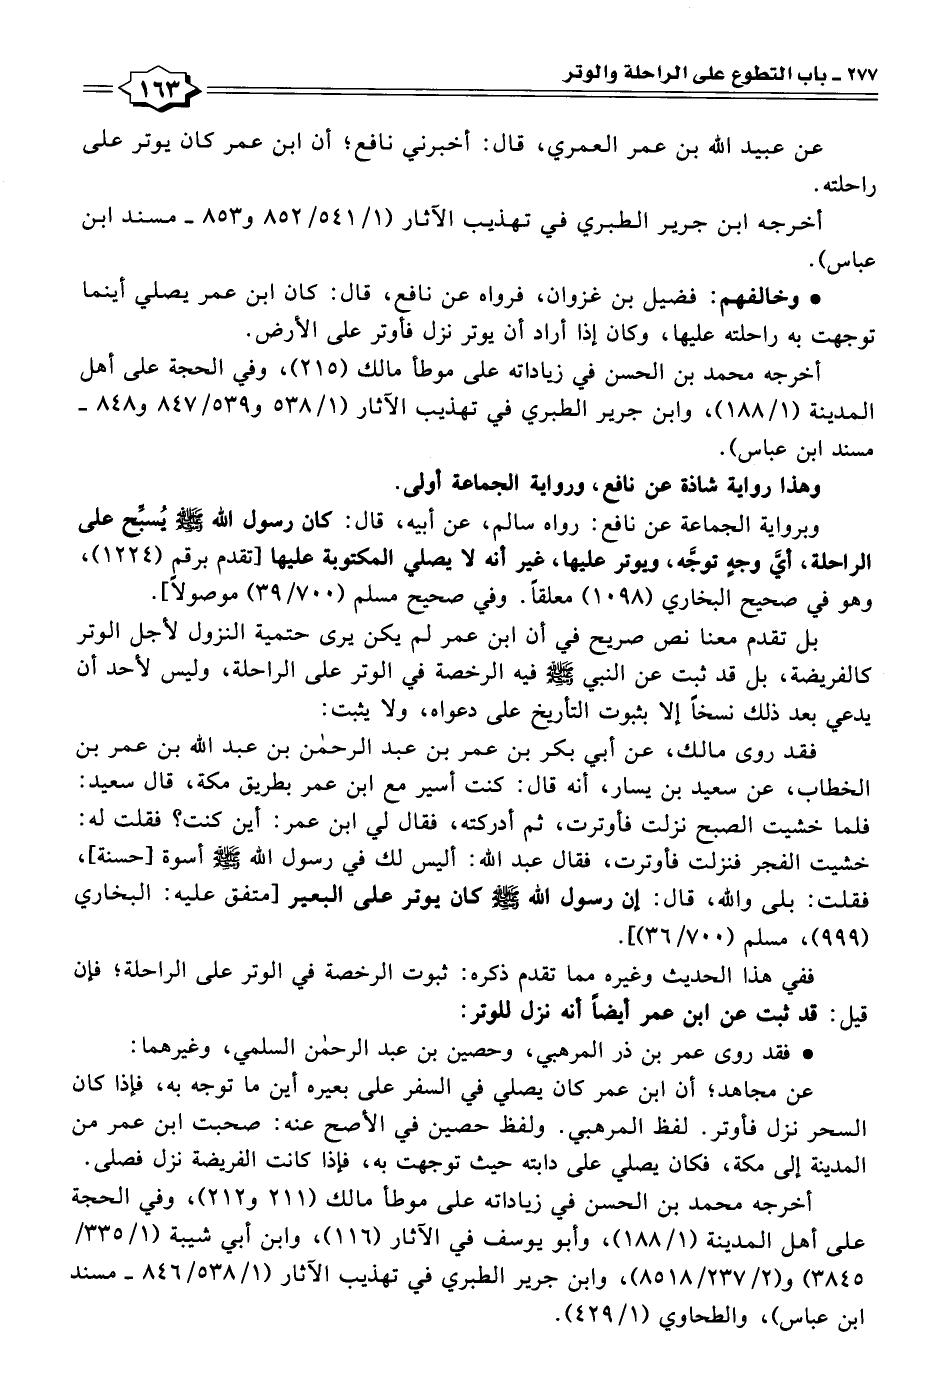 ٢٧٧ - باب التطوع على الراحلة والوتر
١٦٣
عن عبيد الله بن عمر العمري، قال: أخبرني نافع؛ أن ابن عمر كان يوتر على
راحلته.
أخرجه ابن جرير الطبري في تهذيب الآثار (١/ ٥٤١/ ٨٥٢ و٨٥٣ - مسند ابن
عباس).
• وخالفهم: فضيل بن غزوان، فرواه عن نافع، قال: كان ابن عمر يصلي أينما
توجهت به راحلته عليها، وكان إذا أراد أن يوتر نزل فأوتر على الأرض.
أخرجه محمد بن الحسن في زياداته على موطأ مالك (٢١٥)، وفي الحجة على أهل
المدينة (١/ ١٨٨)، وابن جرير الطبري في تهذيب الآثار (١/ ٥٣٨ و٥٣٩/ ٨٤٧ و٨٤٨ -
مسند ابن عباس).
وهذا رواية شاذة عن نافع، ورواية الجماعة أولى.
وبرواية الجماعة عن نافع: رواه سالم، عن أبيه، قال: كان رسول الله ﷺ يُسبِّح على
الراحلة، أيَّ وجهٍ توجَّه، ويوتر عليها، غير أنه لا يصلي المكتوبة عليها [تقدم برقم (١٢٢٤)،
وهو في صحيح البخاري (١٠٩٨) معلقاً. وفي صحيح مسلم (٧٠٠/ ٣٩) موصولاً].
بل تقدم معنا نص صريح في أن ابن عمر لم يكن يرى حتمية النزول لأجل الوتر
كالفريضة، بل قد ثبت عن النبي ﷺ فيه الرخصة في الوتر على الراحلة، وليس لأحد أن
يدعي بعد ذلك نسخاً إلا بثبوت التأريخ على دعواه، ولا يثبت:
فقد روى مالك، عن أبي بكر بن عمر بن عبد الرحمٰن بن عبد الله بن عمر بن
الخطاب، عن سعيد بن يسار، أنه قال: كنت أسير مع ابن عمر بطريق مكة، قال سعيد:
فلما خشيت الصبح نزلت فأوترت، ثم أدركته، فقال لي ابن عمر: أين كنت؟ فقلت له:
خشيت الفجر فنزلت فأوترت، فقال عبد الله: أليس لك في رسول الله ﷺ أسوة [حسنة]،
فقلت: بلى والله، قال: إن رسول الله ﷺ كان يوتر على البعير [متفق عليه: البخاري
(٩٩٩)، مسلم (٧٠٠/ ٣٦)].
ففي هذا الحديث وغيره مما تقدم ذكره: ثبوت الرخصة في الوتر على الراحلة؛ فإن
قيل: قد ثبت عن ابن عمر أيضاً أنه نزل للوتر:
• فقد روى عمر بن ذر المرهبي، وحصين بن عبد الرحمٰن السلمي، وغيرهما:
عن مجاهد؛ أن ابن عمر كان يصلي في السفر على بعيره أين ما توجه به، فإذا كان
السحر نزل فأوتر. لفظ المرهبي. ولفظ حصين في الأصح عنه: صحبت ابن عمر من
المدينة إلى مكة، فكان يصلي على دابته حيث توجهت به، فإذا كانت الفريضة نزل فصلى.
أخرجه محمد بن الحسن في زياداته على موطأ مالك (٢١١ و٢١٢)، وفي الحجة
على أهل المدينة (١/ ١٨٨)، وأبو يوسف في الآثار (١١٦)، وابن أبي شيبة (١/ ٣٣٥/
٣٨٤٥) و(٢/ ٢٣٧/ ٨٥١٨)، وابن جرير الطبري في تهذيب الآثار (١/ ٥٣٨/ ٨٤٦ - مسند
ابن عباس)، والطحاوي (١/ ٤٢٩).